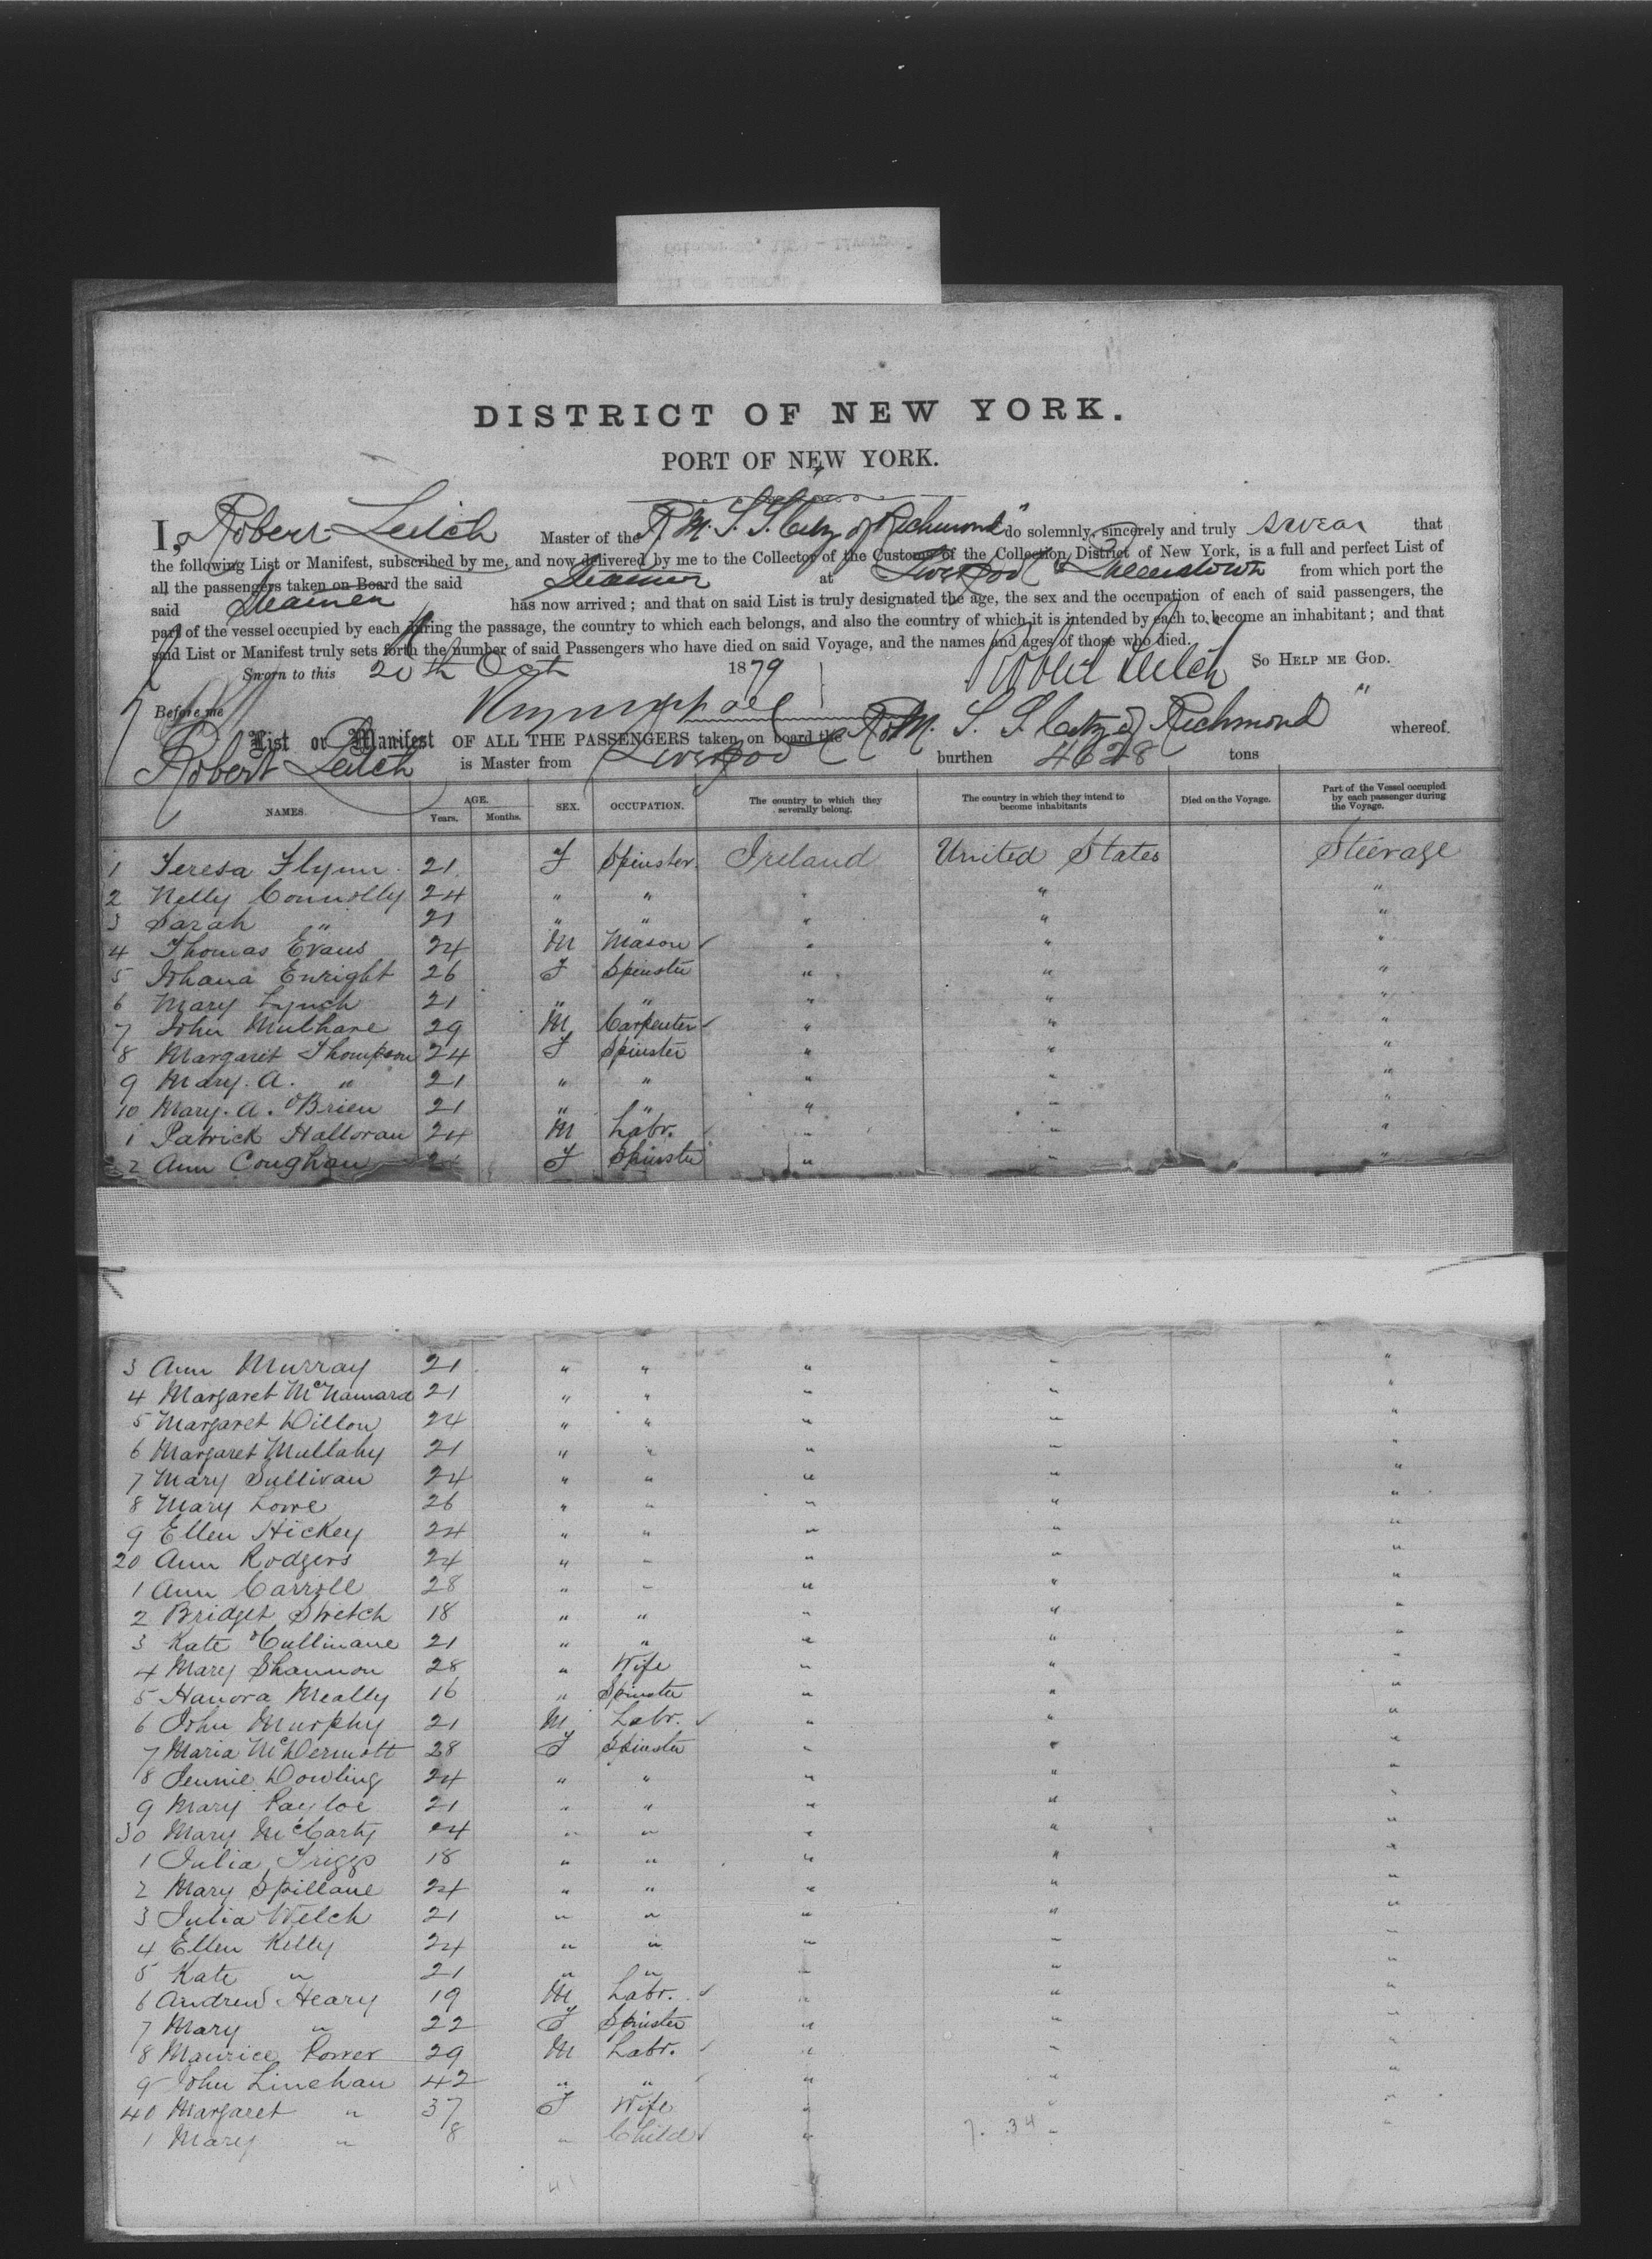 DISTRICT OF NEW YORK.
PORT OF NEW YORK.
I, Robert Leitch Master of the R. M. S. S. "City of Richmond" do solemnly, sincerely and truly swear that
the following List or Manifest, subscribed by me, and now delivered by me to the Collector of the Customs of the Collection District of New York, is a full and perfect List of
all the passengers taken on Board the said Steamer at Liverpool & Queenstown from which port the
said Steamer has now arrived; and that on said List is truly designated the age, the sex and the occupation of each of said passengers, the
part of the vessel occupied by each during the passage, the country to which each belongs, and also the country of which it is intended by each to become an inhabitant; and that
said List or Manifest truly sets forth the number of said Passengers who have died on said Voyage, and the names and ages of those who died.
Sworn to this 20th Oct 1879 Robert Leitch SO HELP ME GOD.
Before me
List or Manifest OF ALL THE PASSENGERS taken on board the R. M. S. S. City of Richmond" whereof
Robert Leitch is Master from Liverpool burthen 4628 tons
NAMES. AGE. Years. Months. SEX. OCCUPATION. The country to which they severally belong. The country in which they intend to become inhabitants Died on the Voyage. Part of the Vessel occupied by each passenger during the Voyage.
1 Teresa Flynn 21 F Spinster Ireland United States Steerage
2 Nelly Connolly 24 " " " " "
3 Sarah " 21 " " " " "
4 Thomas Evans 24 M Mason ✓ " " "
5 Johana Enright 26 F Spinster " " "
6 Mary Lynch 21 " " " " "
7 John Mulhare 29 M Carpenter ✓ " " "
8 Margaret Thompson 24 F Spinster " " "
9 Mary. A. " 21 " " " " "
10 Mary. A. O'Brien 21 " " " " "
1 Patrick Halloran 24 M Labr. ✓ " " "
2 Ann Coughan F Spinster " " "
3 Ann Murray 21 " " " " "
4 Margaret McNamara 21 " " " " "
5 Margaret Dillon 24 " " " " "
6 Margaret Mullahy 21 " " " " "
7 Mary Sullivan 24 " " " " "
8 Mary Lowe 26 " " " " "
9 Ellen Hickey 24 " " " " "
20 Ann Rodgers 24 " " " " "
1 Ann Carroll 28 " " " " "
2 Bridget Stretch 18 " " " " "
3 Kate Cullinane 21 " " " " "
4 Mary Shannon 28 " Wife " " "
5 Hanora Meally 16 " Spinster " " "
6 John Murphy 21 M Labr. ✓ " " "
7 Maria McDermott 28 F Spinster " " "
8 Jennie Dowling 24 " " " " "
9 Mary 21 " " " " "
30 Mary McCarty 24 " " " " "
1 Julia Triggs 18 " " " " "
2 Mary Spillane 24 " " " " "
3 Julia Welch 21 " " " " "
4 Ellen Kelly 24 " " " " "
5 Kate " 21 " " " " "
6 Andrew Heary 19 M Labr. ✓ " " "
7 Mary " 22 F Spinster " " "
8 Maurice Power 29 M Labr. ✓ " " "
9 John Linehan 42 " " ✓ " " "
40 Margaret " 37 F Wife " " "
1 Mary " 8 " Child ✓ " " "
7. 34
41